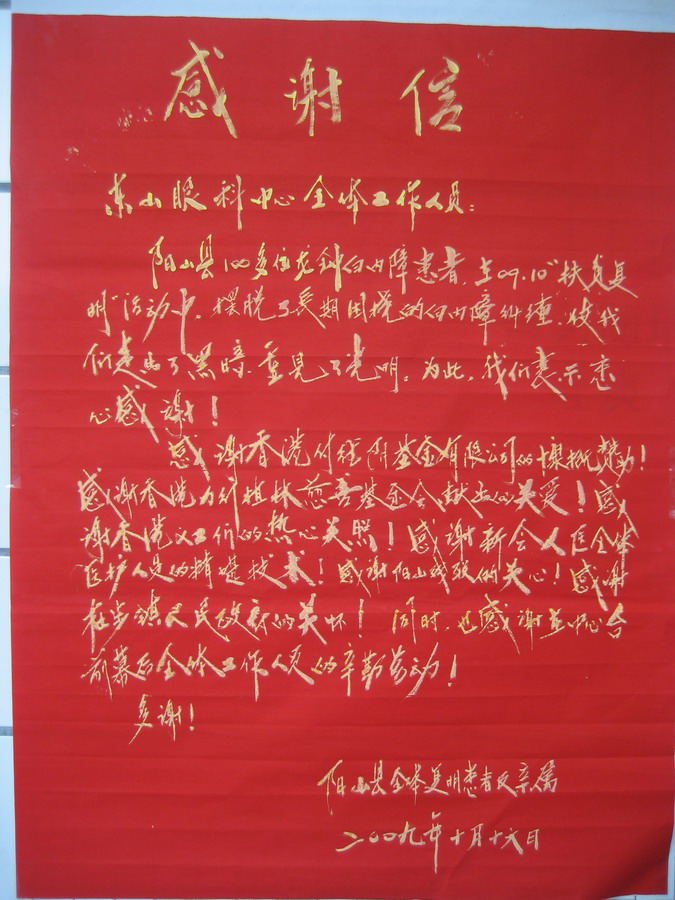 感谢信
东山眼科中心全体工作人员：
阳山县100多位龙钟白内障患者，在09.10"扶贫复
明"活动中，摆脱了长期困扰的白内障纠缠，使我
们走出了黑暗重见了光明。为此，我们表示衷
心感谢！
感谢香港付经阳基金有限公司的慷慨赞助！
感谢香港力行植林慈善基金会献出的关爱！感
谢香港义工们的热心关照！感谢新会人医全体
医护人员的精湛技术！感谢阳山残联的关心！感谢
镇人民政府的关怀！同时，也感谢在中心台
前幕后全体工作人员的辛勤劳动！
多谢！
阳山县全体复明患者及亲属
二00九年十月十六日